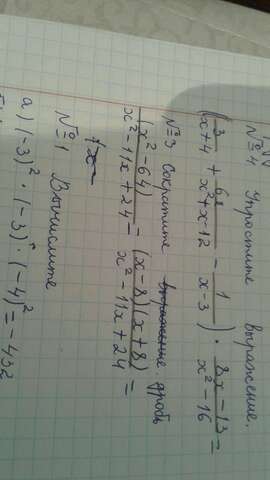 №4 Упростите выражение.
(3/(x+4) + 6x/(x²+x-12) - 1/(x-3)) · (8x-13)/(x²-16) =
№3 Сократите дробь
(x²-64)/(x²-11x+24) = (x-8)(x+8)/(x²-11x+24) =
№1 Вычислите
а) (-3)² · (-3) · (-4)² = -432